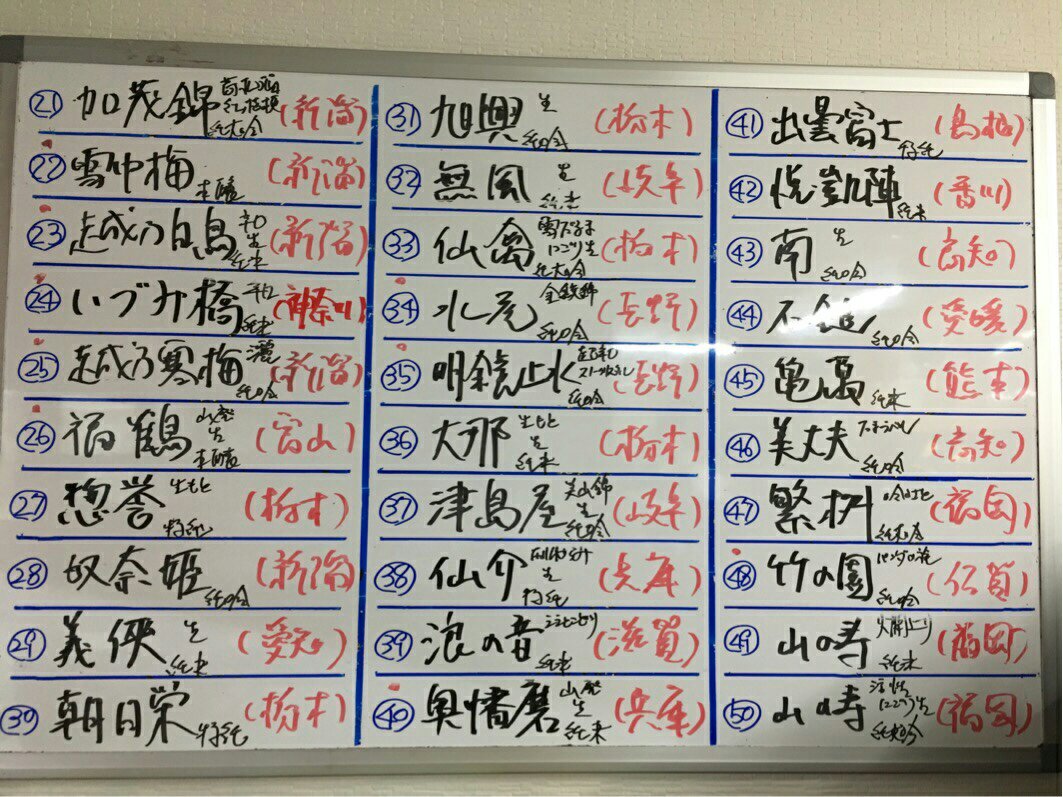 ㉑ 加茂錦 純大吟 (新潟)
㉒ 雪中梅 本醸 (新潟)
㉓ 越乃白鳥 辛口 生 純米 (新潟)
㉔ いづみ橋 純米 (神奈川)
㉕ 越乃寒梅 灑 純吟 (新潟)
㉖ 福鶴 山廃 生 本醸 (富山)
㉗ 惣誉 生もと 特純 (栃木)
㉘ 奴奈姫 純吟 (新潟)
㉙ 義侠 生 純米 (愛知)
㉚ 朝日栄 特純 (栃木)
㉛ 旭興 生 純吟 (栃木)
㉜ 無風 生 純米 (岐阜)
㉝ 仙禽 雪だるま にごり生 純大吟 (栃木)
㉞ 水尾 金紋錦 純吟 (長野)
㉟ 明鏡止水 純吟 (長野)
㊱ 大那 生もと 生 純米 (栃木)
㊲ 津島屋 美山錦 生 純吟 (岐阜)
㊳ 仙介 生 特純 (兵庫)
㊴ 浪の音 純米 (滋賀)
㊵ 奥播磨 山廃 生 純米 (兵庫)
㊶ 出雲富士 特純 (島根)
㊷ 悦凱陣 純米 (香川)
㊸ 南 生 純吟 (高知)
㊹ 石鎚 純吟 (愛媛)
㊺ 亀萬 純米 (熊本)
㊻ 美丈夫 純吟 (高知)
㊼ 繁桝 吟のさと 純大吟 (福岡)
㊽ 竹の園 純吟 (佐賀)
㊾ 山の寿 純米 (福岡)
㊿ 山の寿 にごり生 純吟 (福岡)